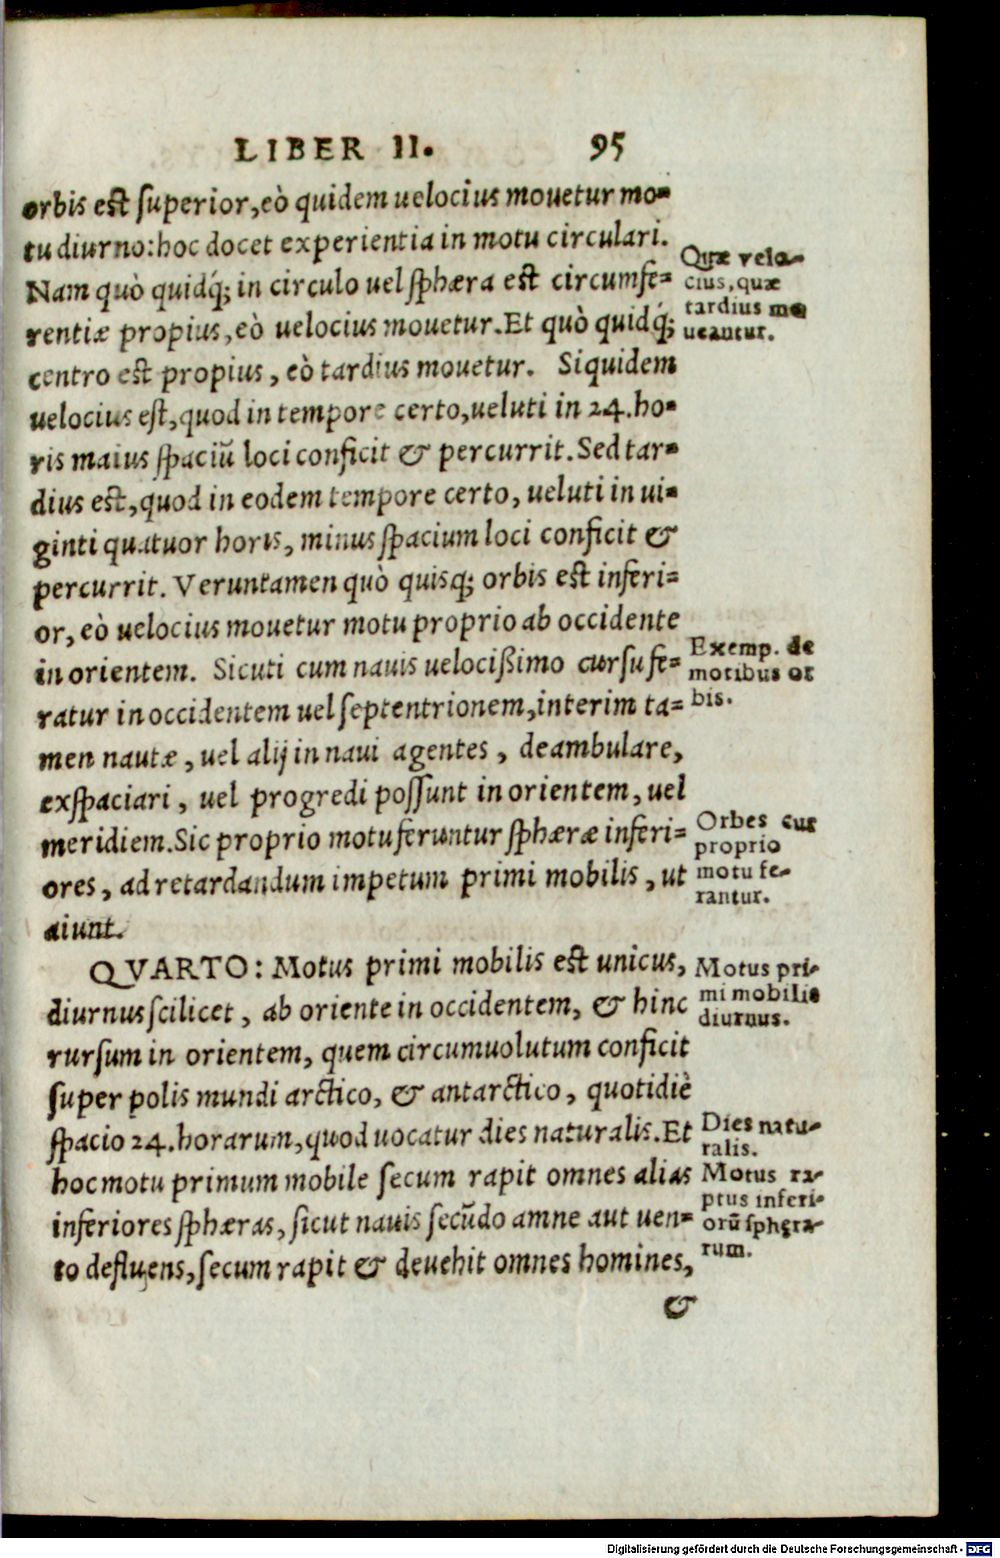 LIBER II. 95
orbis est superior, eò quidem uelocius mouetur mo-
tu diurno: hoc docet experientia in motu circulari.
Nam quò quidq́; in circulo uel sphæra est circumfe-
rentiæ propius, eò uelocius mouetur. Et quò quidq́;
centro est propius, eò tardius mouetur. Siquidem
uelocius est, quod in tempore certo, ueluti in 24. ho-
ris maius spaciũ loci conficit & percurrit. Sed tar-
dius est, quod in eodem tempore certo, ueluti in ui-
ginti quatuor horis, minus spacium loci conficit &
percurrit. Veruntamen quò quisq; orbis est inferi-
or, eò uelocius mouetur motu proprio ab occidente
in orientem. Sicuti cum nauis uelocißimo cursu fe-
ratur in occidentem uel septentrionem, interim ta-
men nautæ, uel alij in naui agentes, deambulare,
exspaciari, uel progredi possunt in orientem, uel
meridiem. Sic proprio motu feruntur sphæræ inferi-
ores, ad retardandum impetum primi mobilis, ut
aiunt.
QVARTO: Motus primi mobilis est unicus,
diurnus scilicet, ab oriente in occidentem, & hinc
rursum in orientem, quem circumuolutum conficit
super polis mundi arctico, & antarctico, quotidiè
spacio 24. horarum, quod uocatur dies naturalis. Et
hoc motu primum mobile secum rapit omnes alias
inferiores sphæras, sicut nauis secũdo amne aut uen-
to defluens, secum rapit & deuehit omnes homines,
&
Quæ velo-
cius, quæ
tardius mo
ueantur.
Exemp. de
motibus or
bis.
Orbes cur
proprio
motu fe-
rantur.
Motus pri-
mi mobilis
diurnus.
Dies natu-
ralis.
Motus ra-
ptus inferi-
orũ sphęra-
rum.
Digitalisierung gefördert durch die Deutsche Forschungsgemeinschaft - DFG